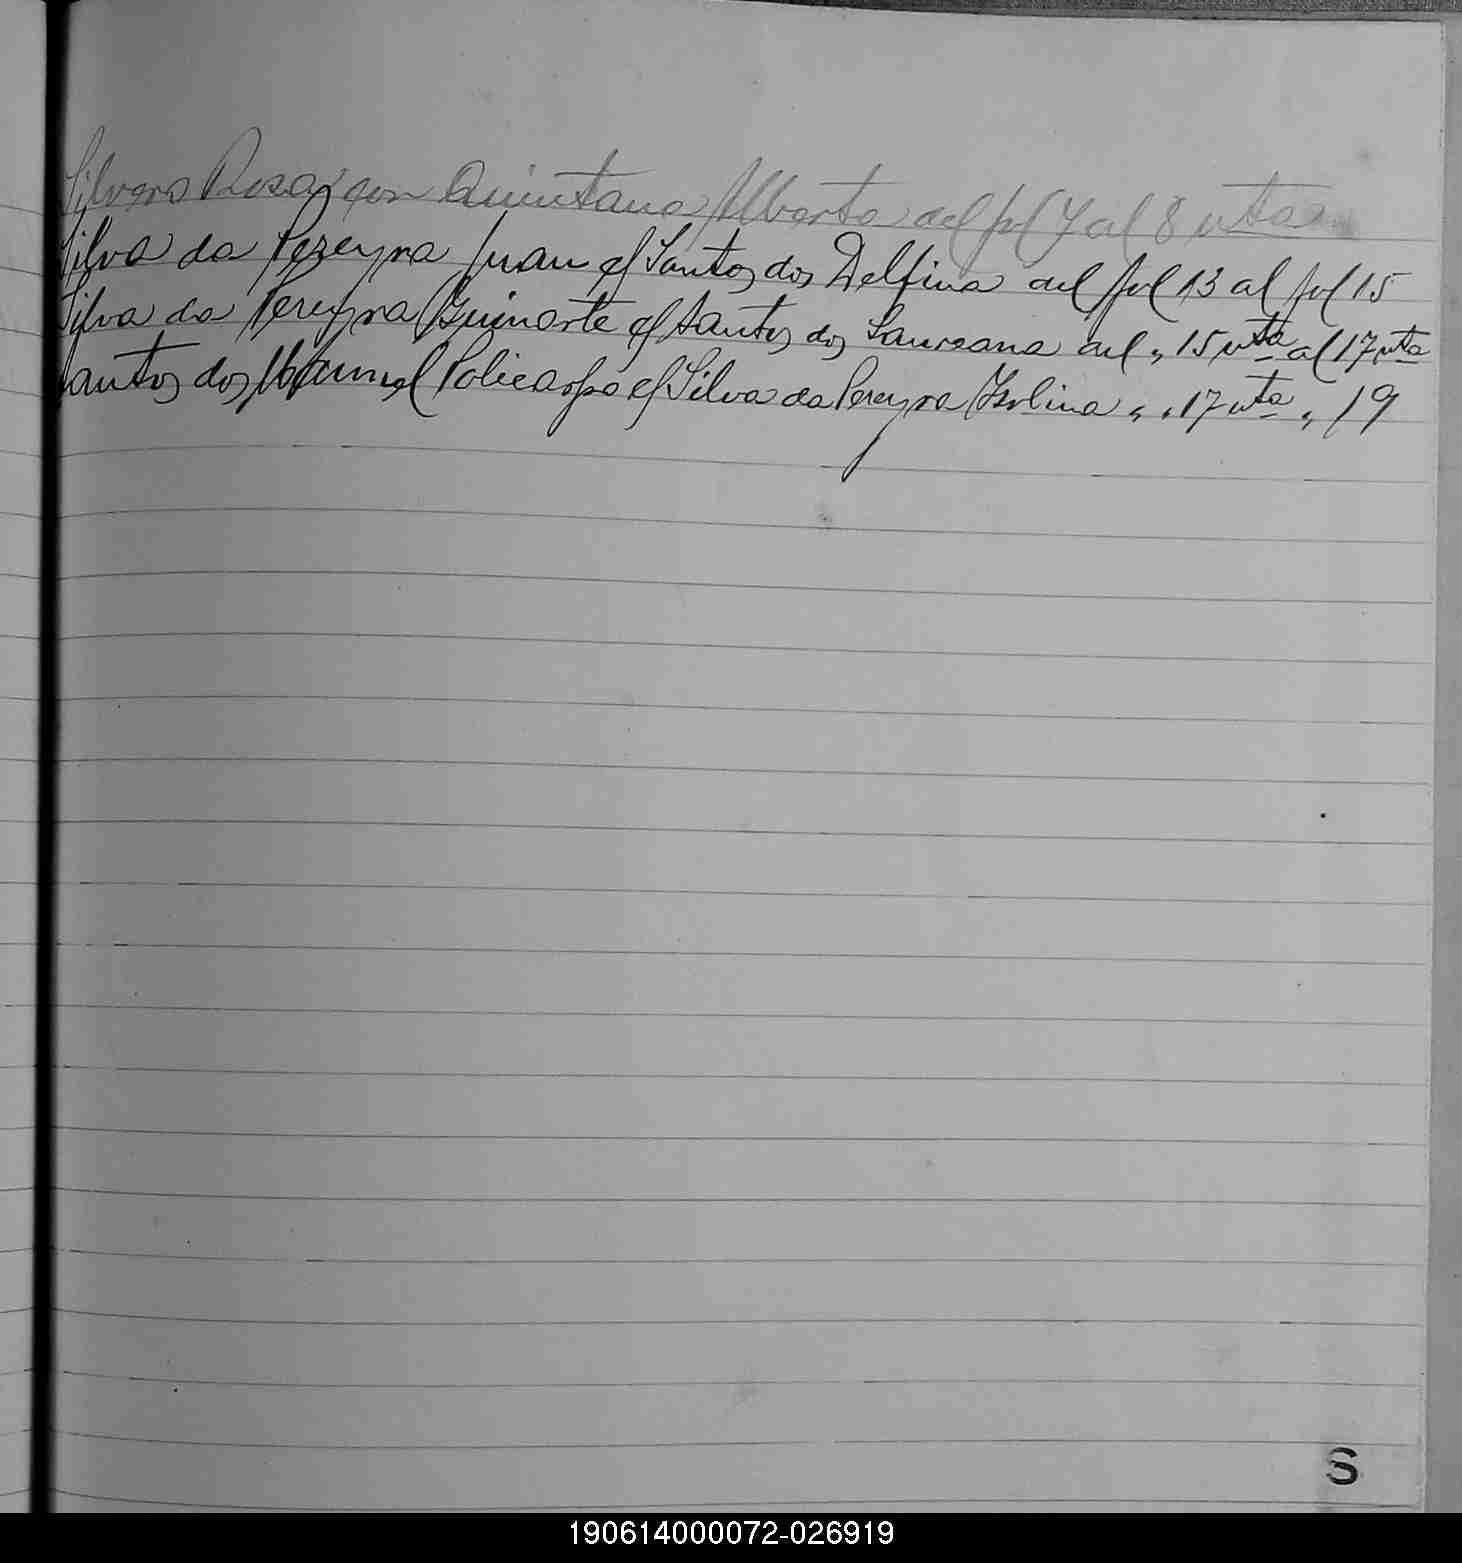 Silvera Rosa con Quintana Alberto del fol 7 al 8 vta
Silva da Pereyra Juan c/ Santos dos Delfina del fol 13 al fol 15
Silva da Pereyra Guinarte c/ Santos dos Laureana del " 15 vta al 17 vta
Santos dos Manuel Policarpo c/ Silva da Pereyra Isolina " " 17 vta " 19
S
190614000072-026919